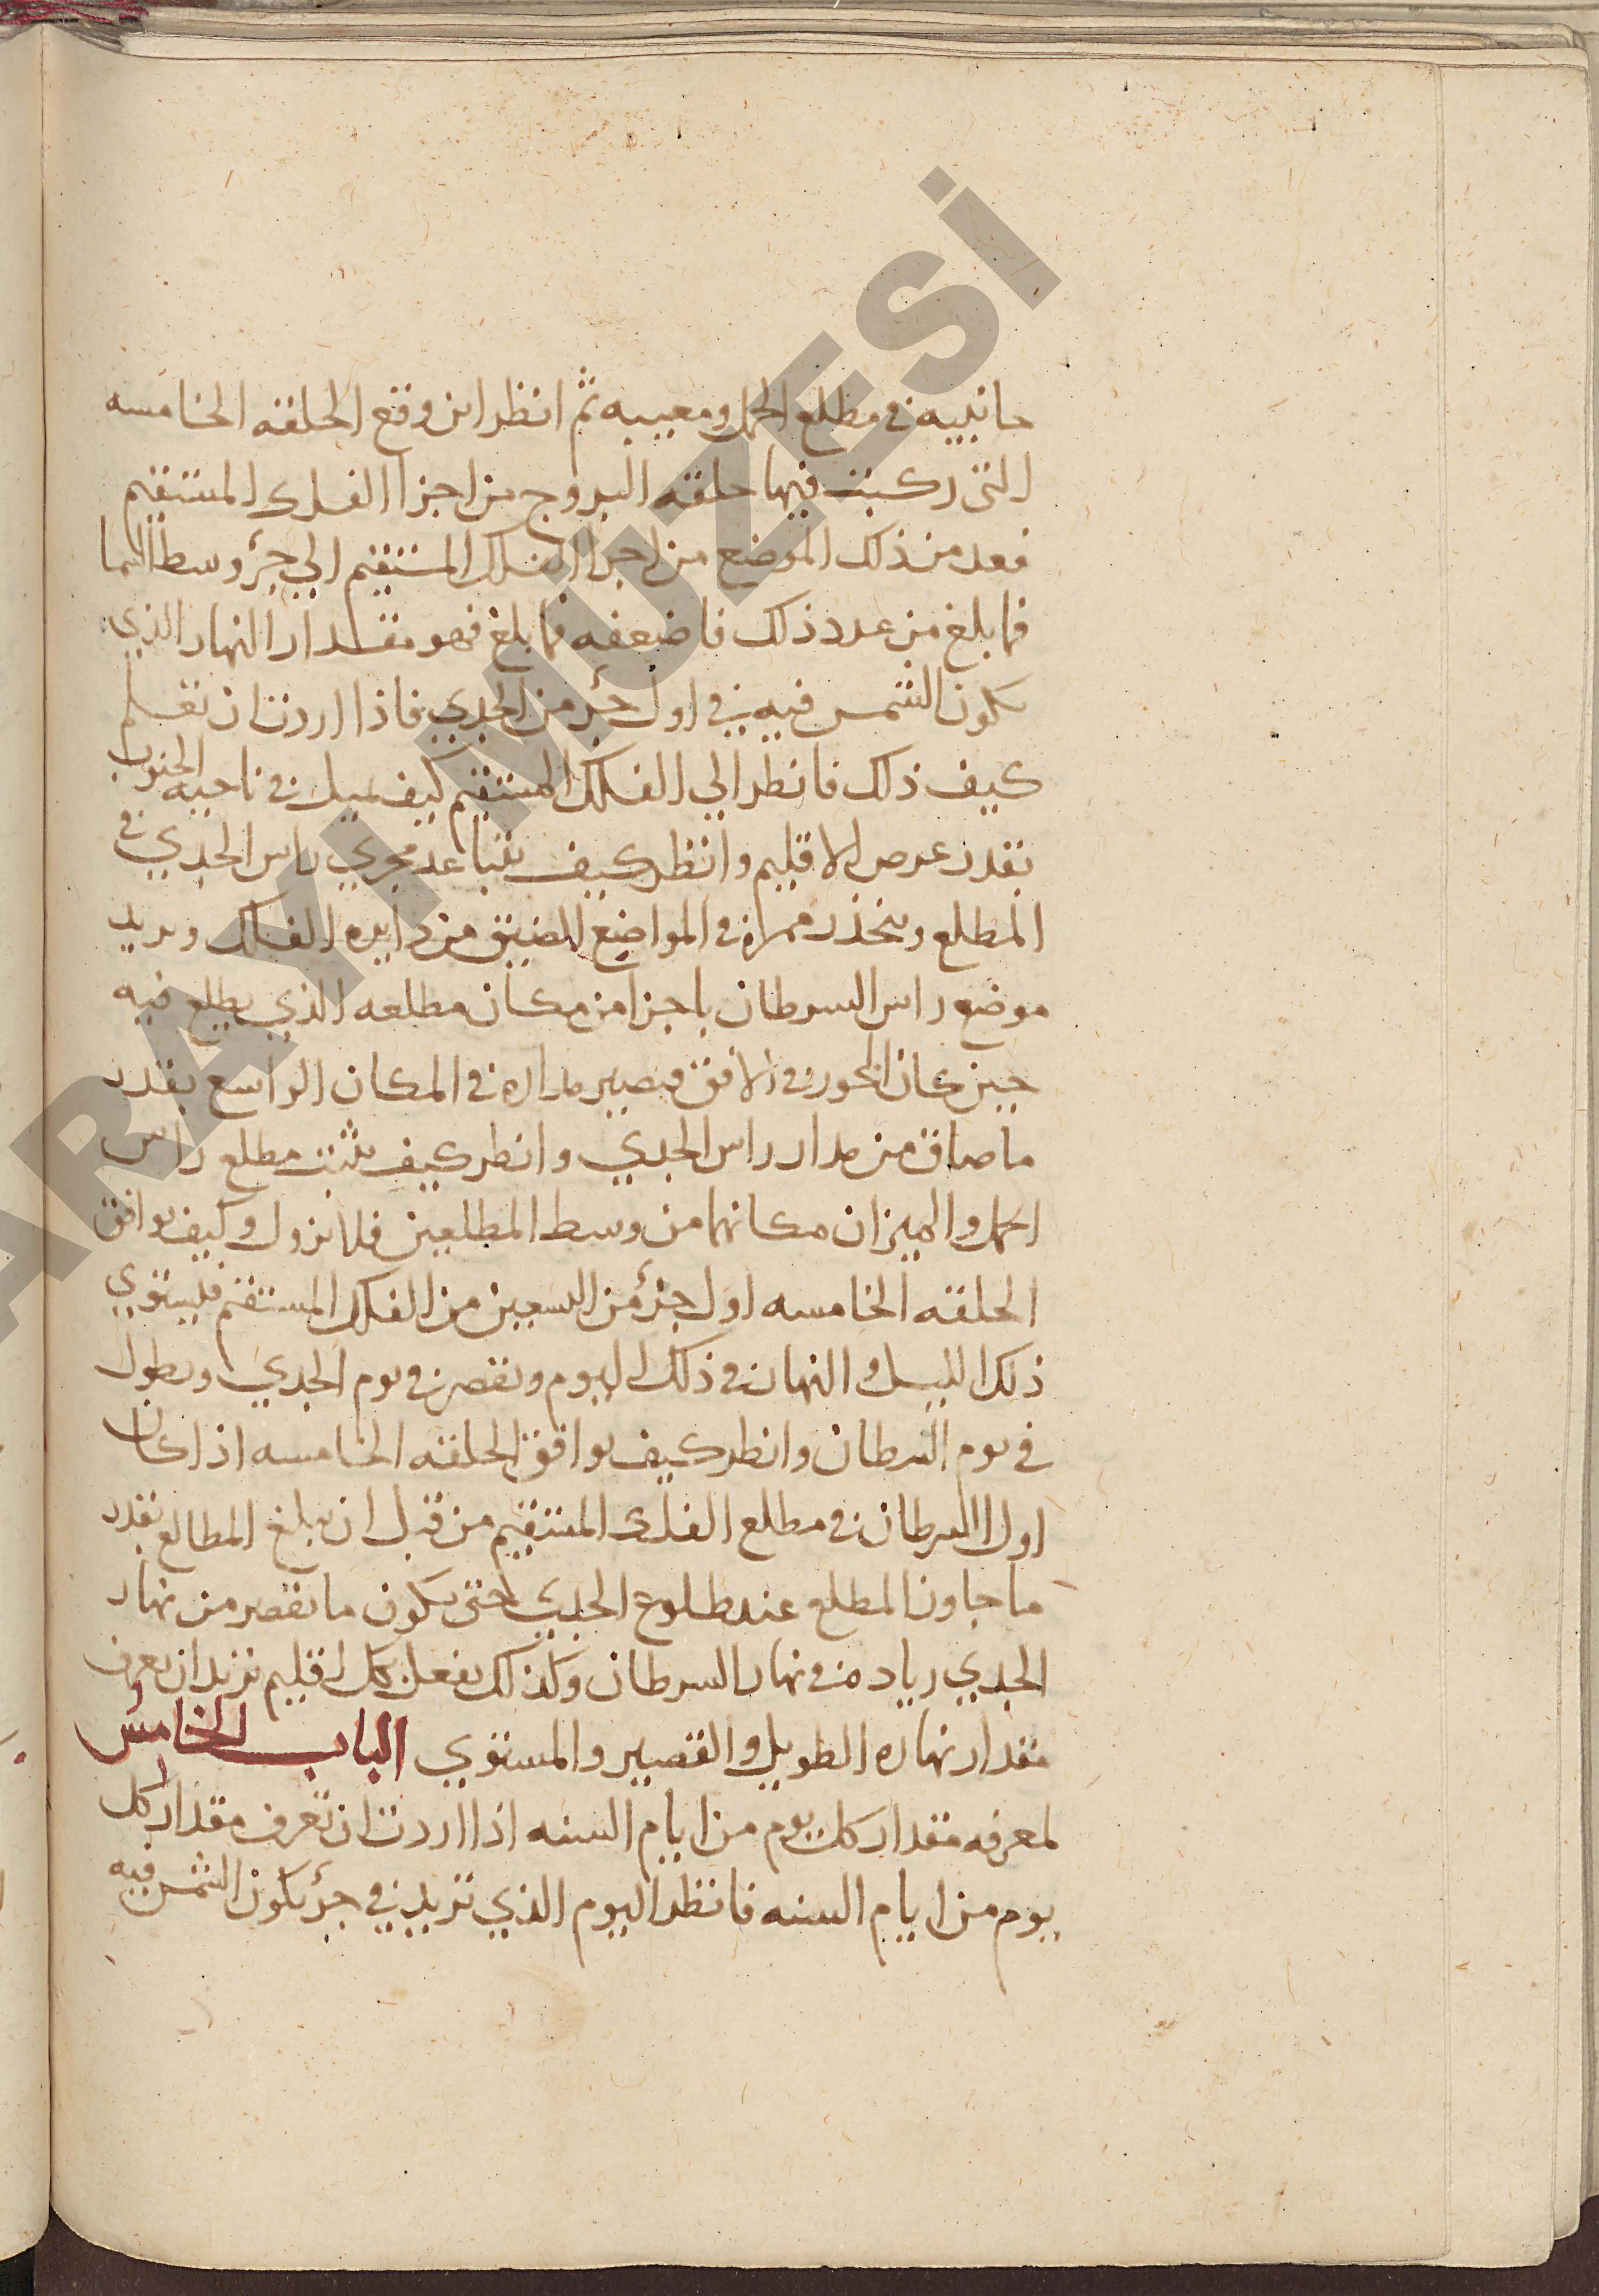 جانبيه في مطلع الحمل ومغيبه ثم انظر اين وقع الحلقه الخامسه
التي ركبت فيها حلقه البروج من اجزا الفلك المستقيم
فعد من ذلك الموضع من اجزا الفلك المستقيم الي جزؤ وسط السما
فما بلغ من عدد ذلك فاضعفه فما بلغ فهو مقدار النهار الذي
تكون الشمس فيه في اول جزؤ من الجدي فاذا اردت ان تعلم
كيف ذلك فانظر الي الفلك المستقيم كيف يميل في ناحيه الجنوب
بقدر عرض الاقليم وانظر كيف يتباعد مجري راس الجدي في
المطلع وينحدر ممره في المواضع المضيق من دايره الفلك ويريد
موضع راس السرطان باجزا من مكان مطلعه الذي يطلع فيه
حين كان المحور في الافق فيصير مداره في المكان الواسع بقدر
ما ضاق من مدار راس الجدي وانظر كيف يثبت مطلع راس
الحمل والميزان مكانهما من وسط المطلعين فلا يزول وكيف يوافق
الحلقه الخامسه اول جزؤ من التسعين من الفلك المستقيم فيستوي
ذلك الليل والنهار في ذلك اليوم وتقصر في يوم الجدي ويطول
في يوم السرطان وانظر كيف يوافق الحلقه الخامسه اذا كان
اول السرطان في مطلع الفلك المستقيم من قبل ان يبلغ المطالع بقدر
ما جاوز المطلع عند طلوع الجدي حتي يكون ما نقص من نهار
الجدي زياده في نهار السرطان وكذلك نفعل بكل اقليم نريد ان نعرف
مقدار نهاره الطويل والقصير والمستوي الباب الخامس
لمعرفه مقدار كل يوم من ايام السنه اذا اردت ان تعرف مقدار كل
يوم من ايام السنه فانظر اليوم الذي تريد في جزؤ تكون الشمس فيه
ARAYI MÜZESİ